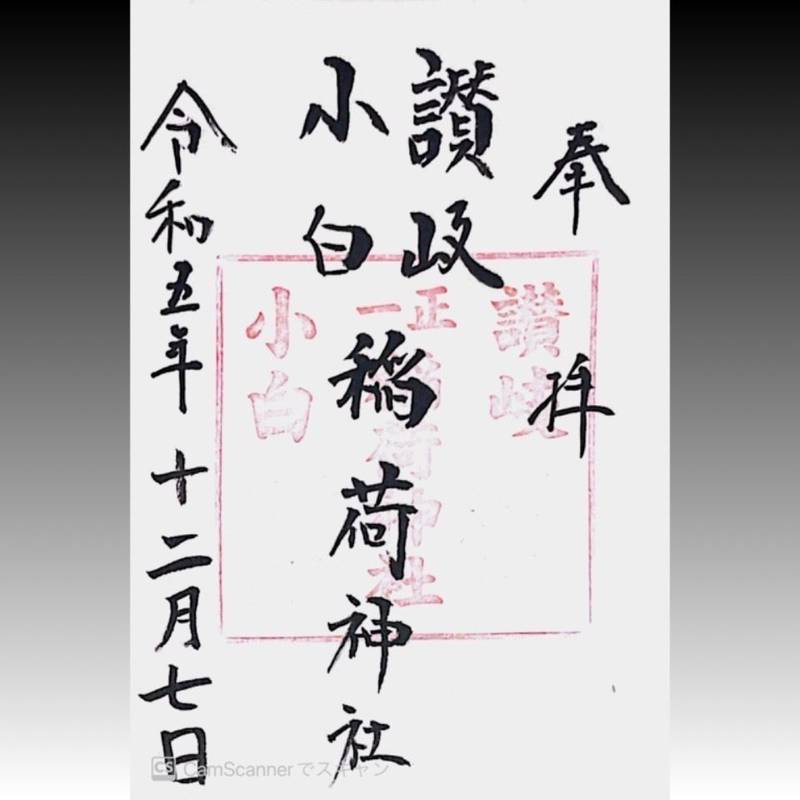 奉拝
讃岐
小白
稲荷神社
令和五年十二月七日
讃岐
正一
稲荷神社
小白
CS CamScannerでスキャン